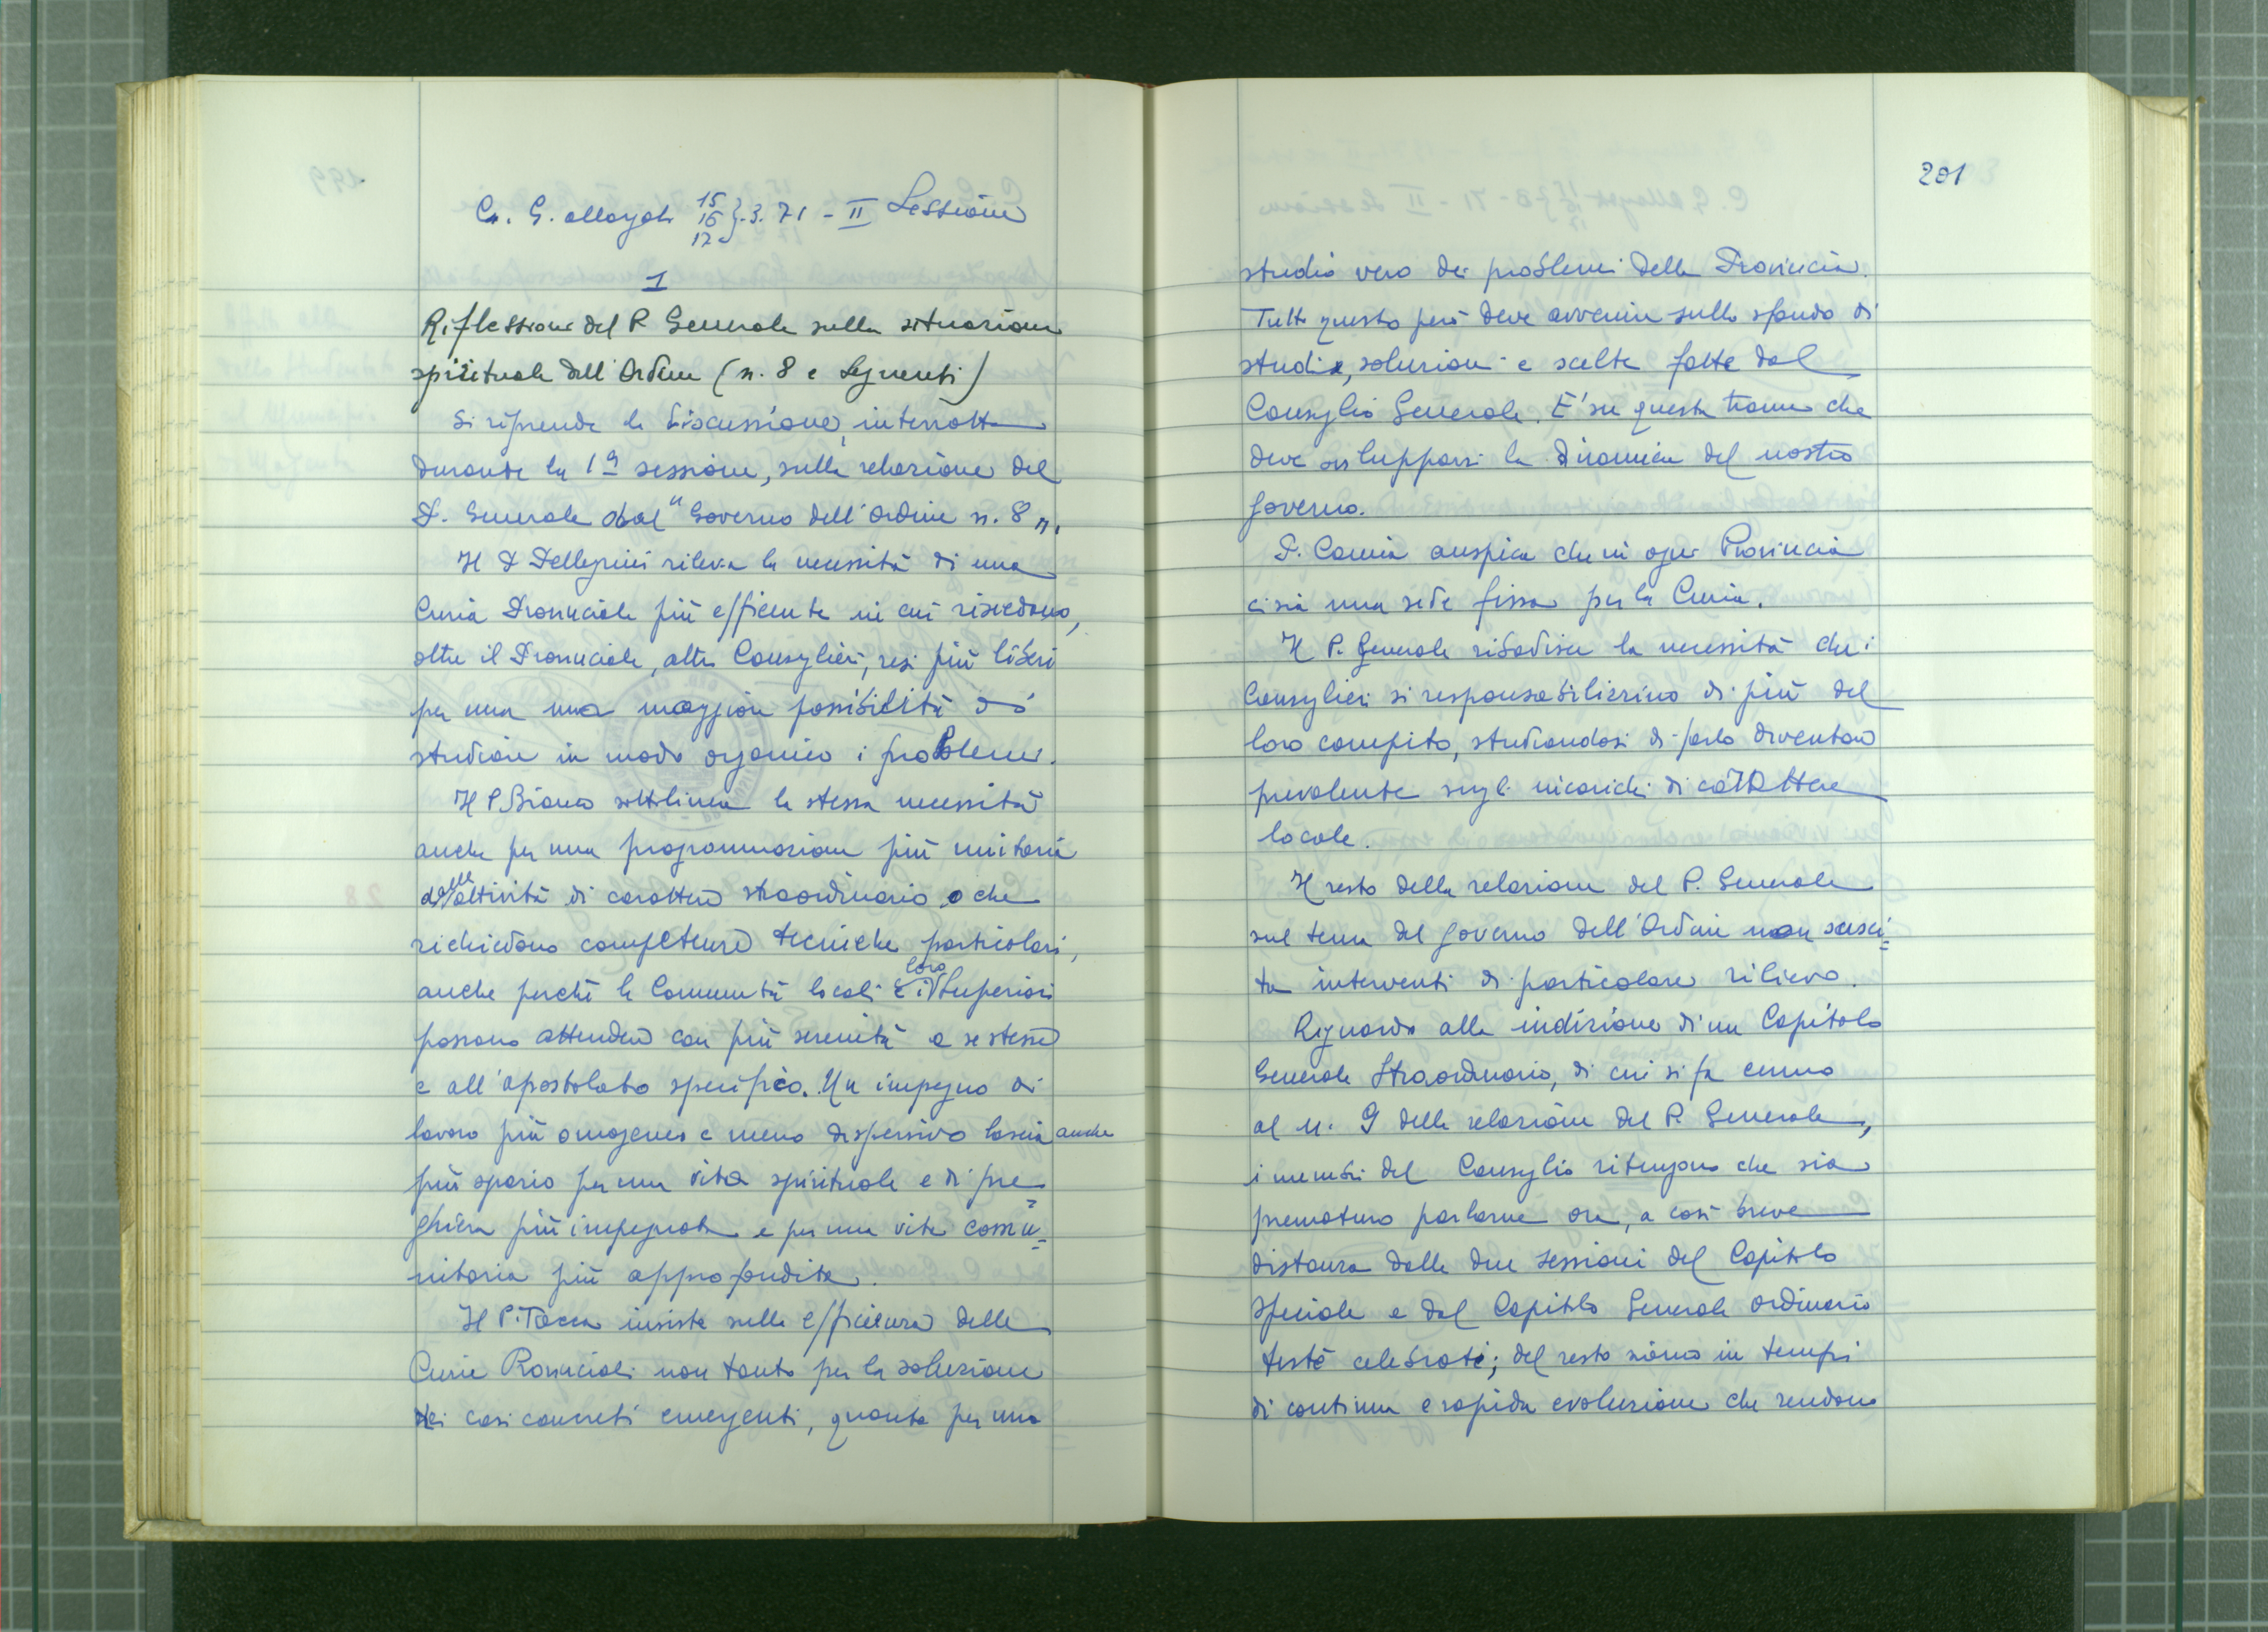 C. G. allargato 15 16 17 } .3.71 - II Sessione
1
Riflessione del P. Generale sulla situazione
spirituale dell'Ordine (n. 8 e seguenti)
Si riprende la discussione, interrotta
durante la 1ª sessione, sulla relazione del
P. Generale dal "Governo dell'Ordine n. 8".
Il P. Pellegrini rileva la necessità di una
Curia Provinciale più efficiente in cui risiedono,
oltre il Provinciale, altri Consiglieri, resi più liberi
per una una maggiore possibilità di
studiare in modo organico i problemi.
Il P. Bianco sottolinea la stessa necessità
anche per una programmazione più unitaria
delle attività di carattere straordinario o che
richiedono competenze tecniche particolari,
anche perché le Comunità locali e i loro Superiori
possano attendere con più serenità a se stesse
e all'apostolato specifico. Un impegno di
lavoro più omogeneo e meno dispersivo lascia anche
più spazio per una vita spirituale e di pre=
ghiera più impegnata e per una vita comu=
nitaria più approfondita.
Il P. Tacca insiste sulla efficienza delle
Curie Provinciali non tanto per la soluzione
dei casi concreti emergenti, quanto per uno
201
studio vero dei problemi della Provincia.
Tutto questo però deve avvenire sullo sfondo di
studi, soluzioni e scelte fatte dal
Consiglio Generale. E' su questa trama che
deve svilupparsi la dinamica del nostro
governo.
P. auspica che in ogni Provincia
ci sia una sede fissa per la Curia.
Il P. Generale ribadisce la necessità che i
Consiglieri si responsabilizzino di più del
loro compito, studiandosi di farlo diventare
prevalente sugli incarichi di carattere
locale.
Il resto della relazione del P. Generale
sul tema del governo dell'Ordine non susci=
ta interventi di particolare rilievo.
Riguardo alla indizione di un Capitolo
Generale Straordinario, di cui si fa cenno
al n. 9 della relazione del P. Generale,
i membri del Consiglio ritengono che sia
prematuro parlarne ora, a così breve
distanza dalle due sessioni del Capitolo
speciale e dal Capitolo Generale ordinario
testé celebrati; del resto siamo in tempi
di continua e rapida evoluzione che rendono